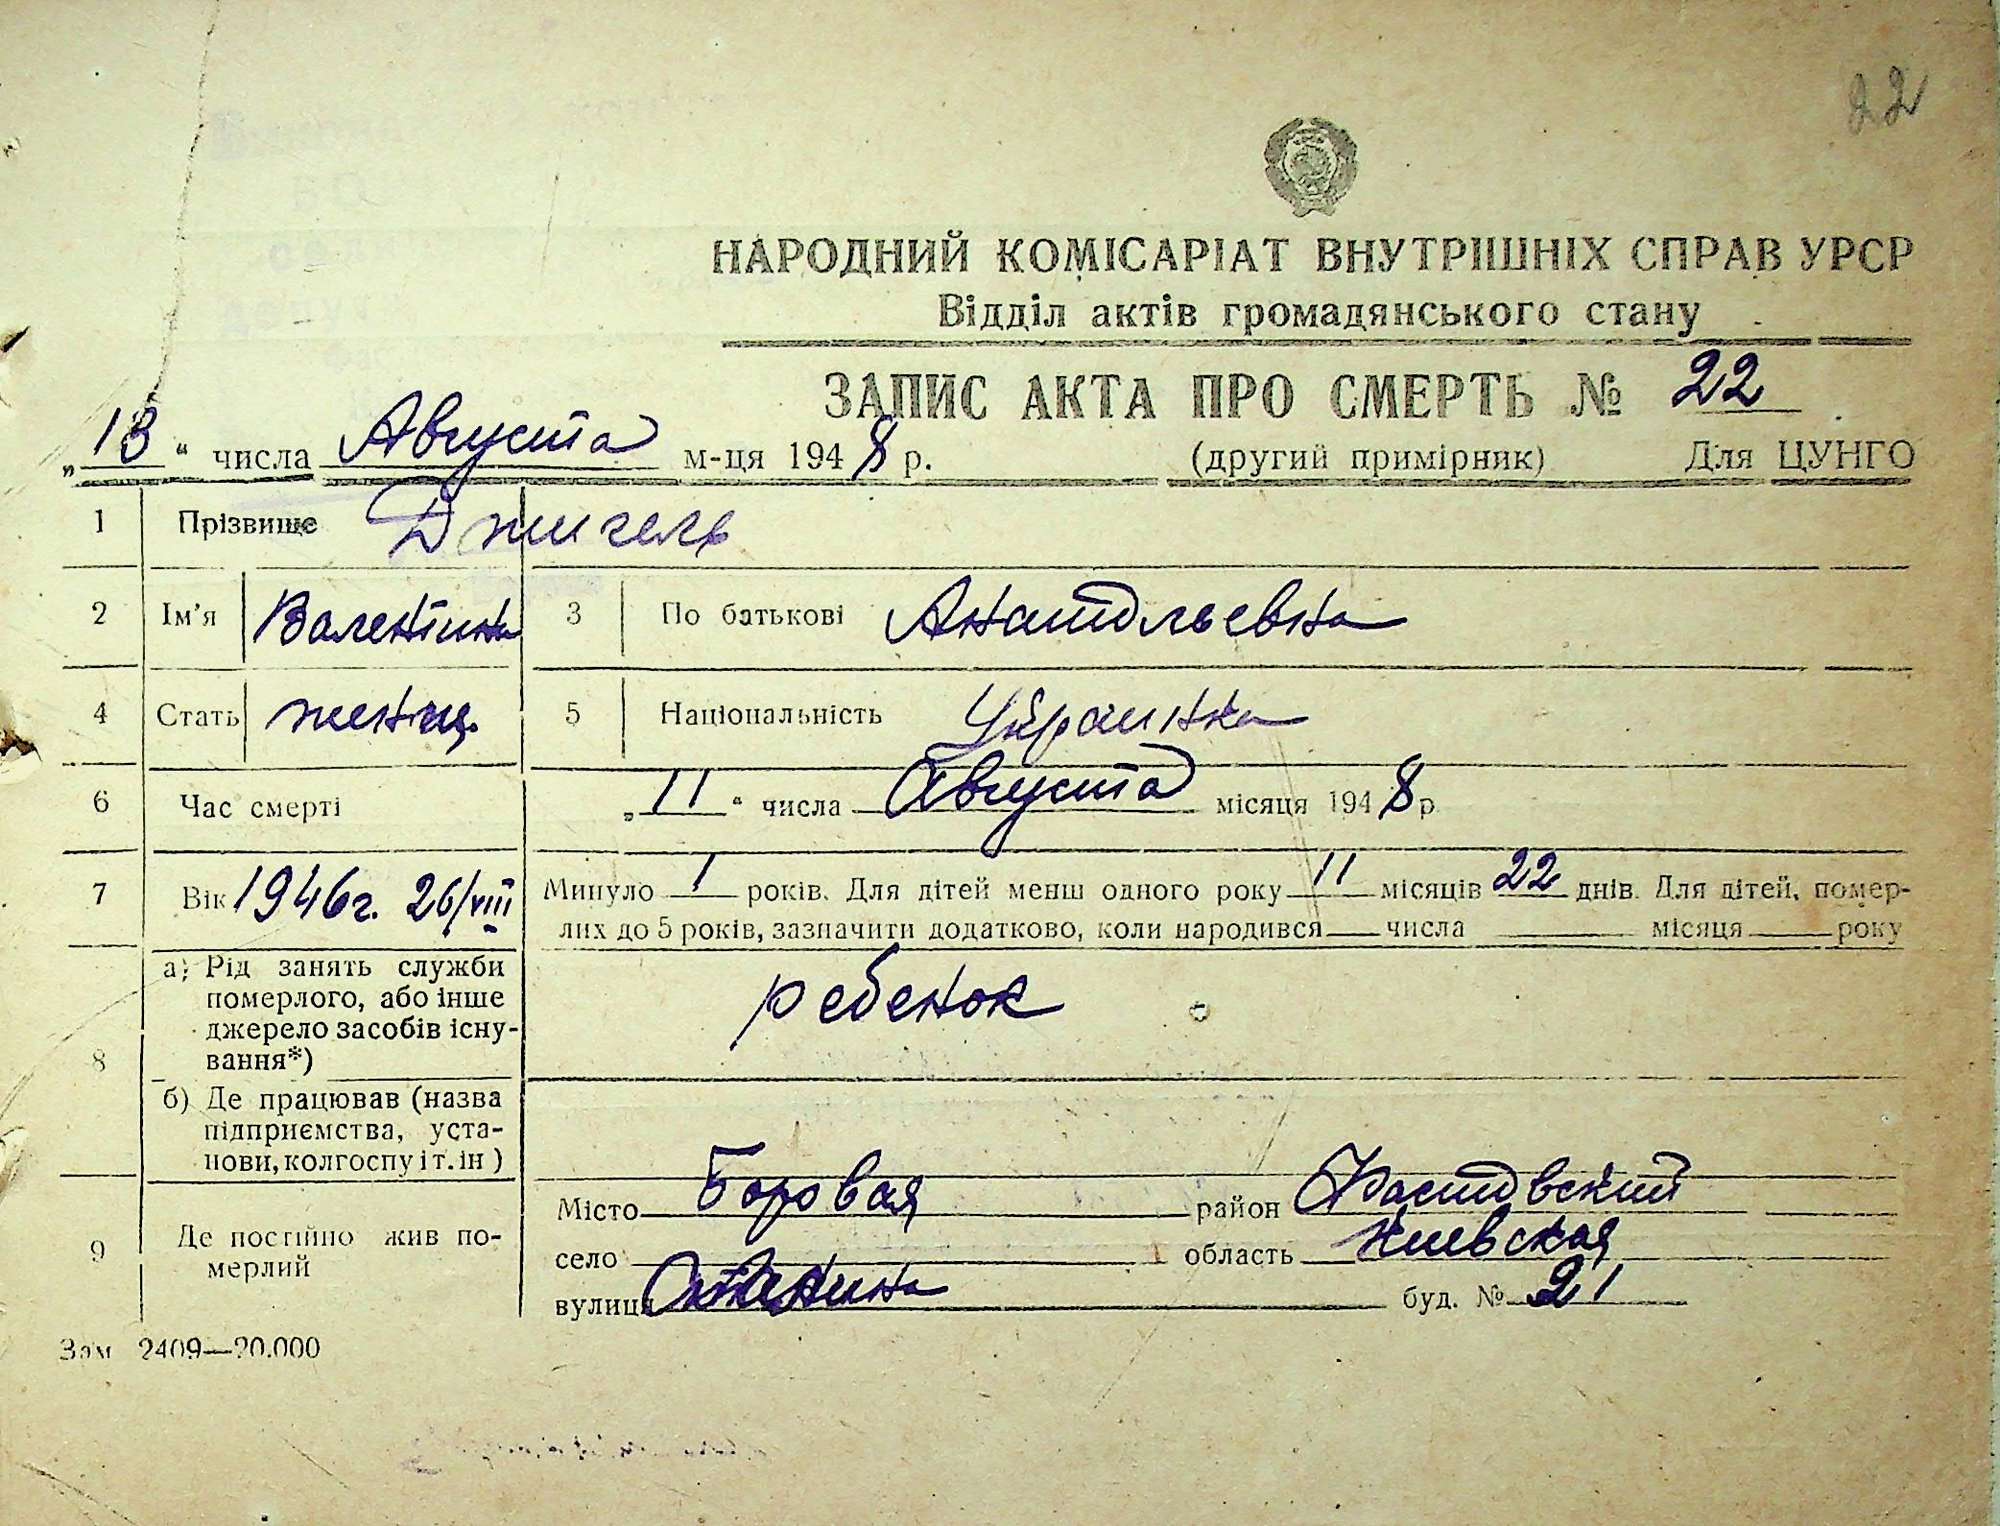 22
НАРОДНИЙ КОМІСАРІАТ ВНУТРІШНІХ СПРАВ УРСР
Відділ актів громадянського стану
ЗАПИС АКТА ПРО СМЕРТЬ № 22
„13“ числа Августа м-ця 1948 р. (другий примірник) Для ЦУНГО
1 Прізвище Джигель
2 Ім’я Валентина 3 По батькові Анатольевна
4 Стать женщ. 5 Національність Украинка
6 Час смерті „11“ числа Августа місяця 1948 р
7 Вік 1946г. 26/VIII Минуло 1 років. Для дітей менш одного року 11 місяців 22 днів. Для дітей, помер-
лих до 5 років, зазначити додатково, коли народився числа місяця року
8 а) Рід занять служби
померлого, або інше
джерело засобів існу-
вання*)
ребенок
б) Де працював (назва
підприємства, уста-
нови, колгоспу і т. ін )
9 Де постійно жив по-
мерлий
Місто Боровая район Фастовский
село область Киевская
вулиця буд. № 21
Зам 2409—20.000